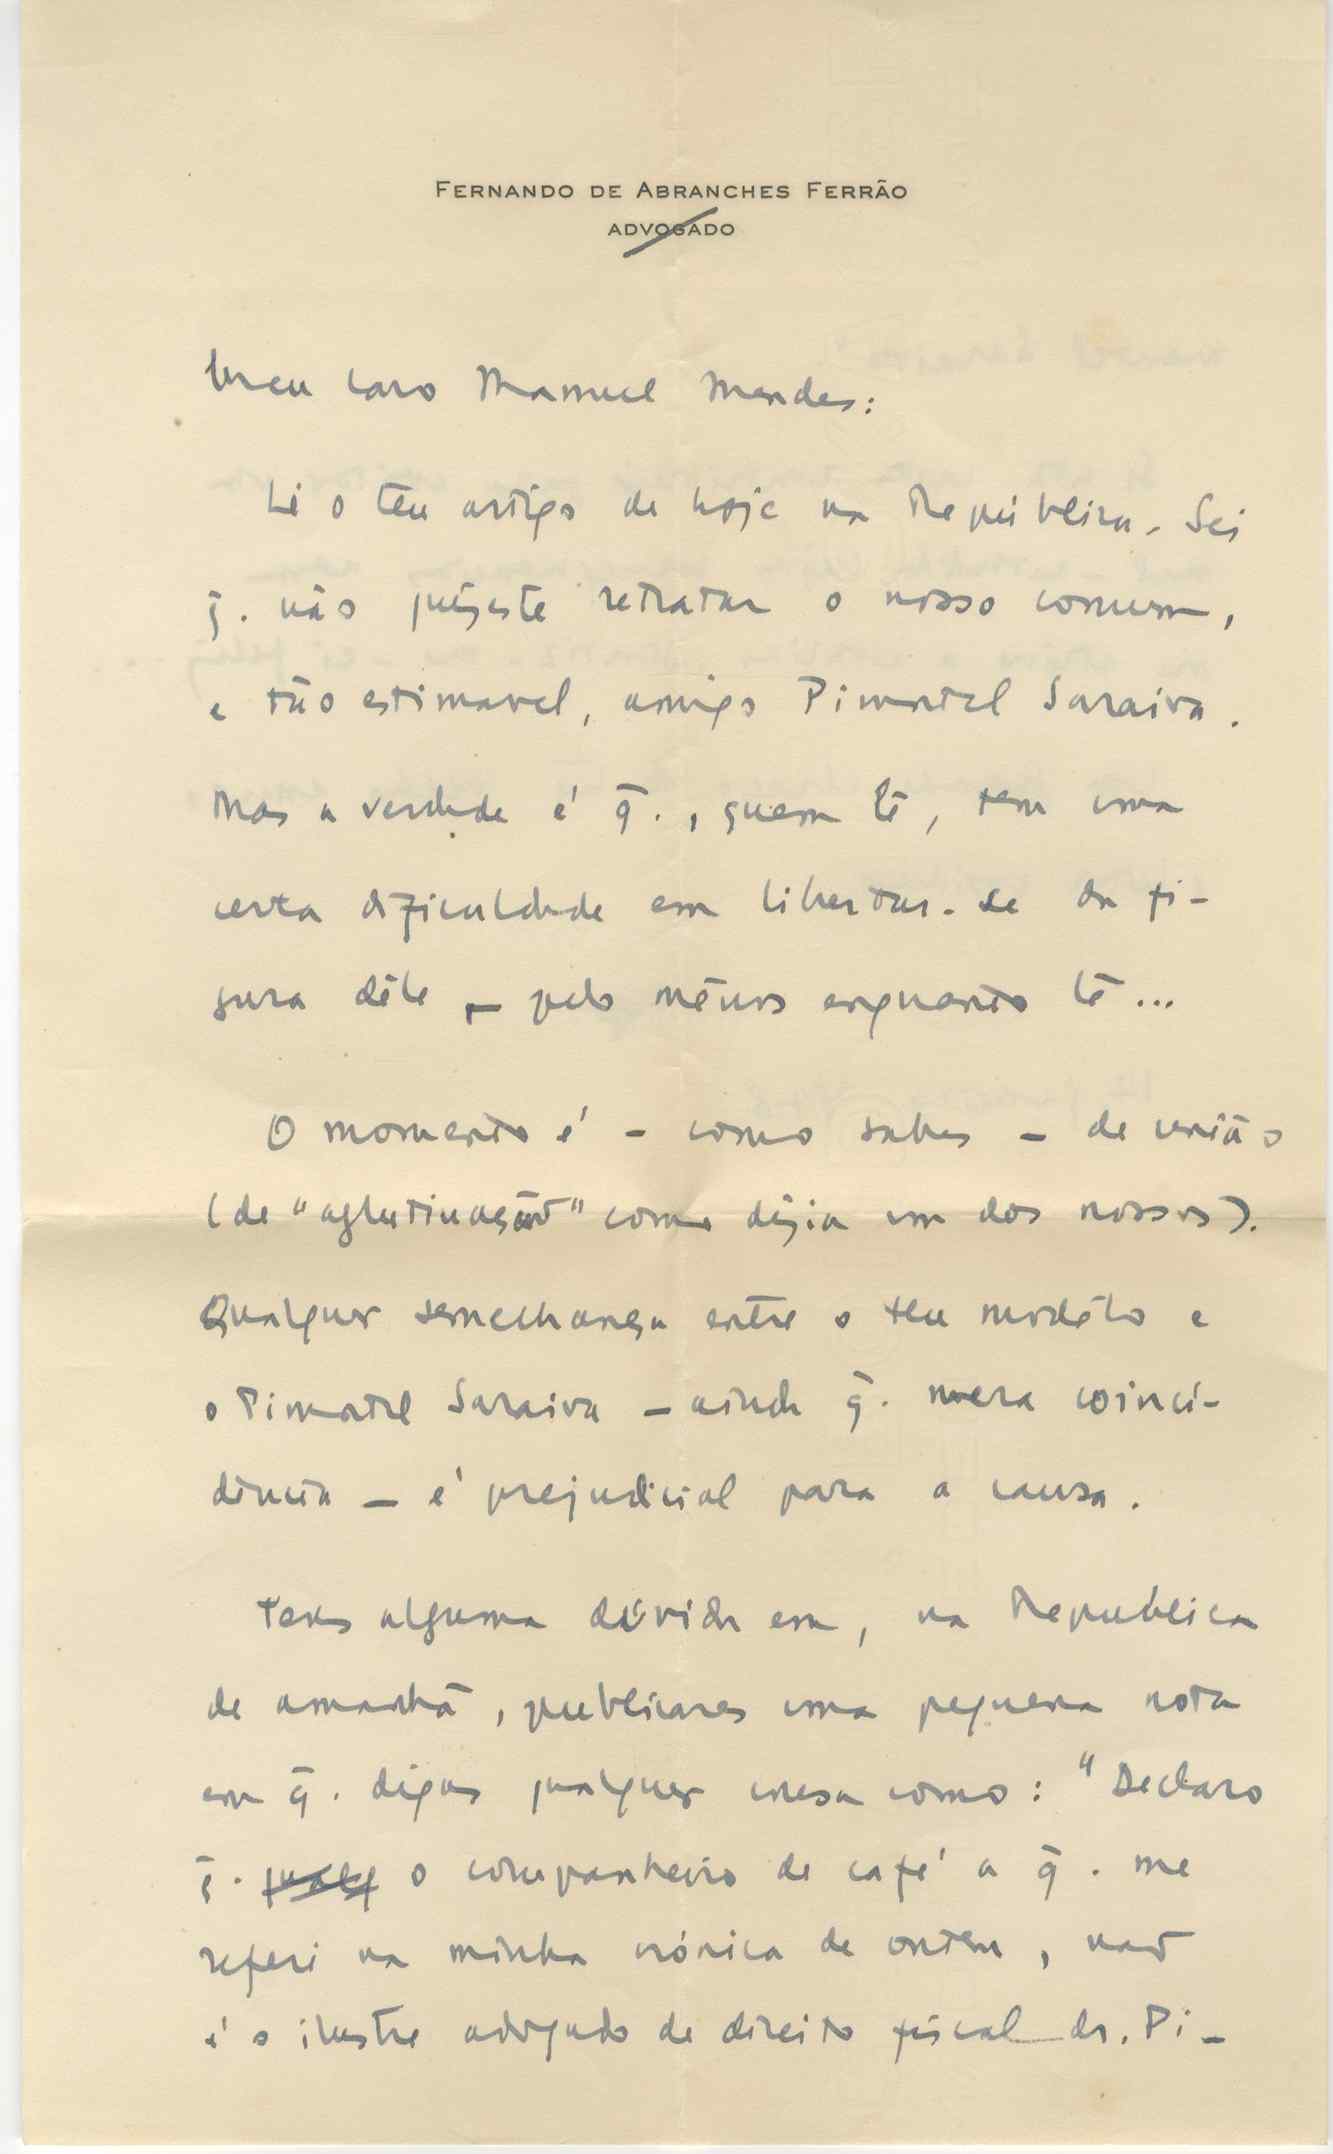 FERNANDO DE ABRANCHES FERRÃO
ADVOGADO
Meu caro Manuel Mendes:
Li o teu artigo de hoje na República. Sei
q̄. não quizeste retratar o nosso comum,
e tão estimavel, amigo Pimentel Saraiva.
Mas a verdade é q̄., quem lê, tem uma
certa dificuldade em libertar-se da fi-
gura dêle, – pelo menos enquanto lê...
O momento é – como sabes – de união
(de "aglutinação" como dizia um dos nossos).
Qualquer semelhança entre o teu modêlo e
o Pimentel Saraiva – ainda q̄. mera coinci-
dência – é prejudicial para a causa.
Tens alguma dúvida em, na Republica
de amanhã, publicares uma pequena nota
em q̄. digas qualquer coisa como: "Declaro
q̄. o companheiro de café a q̄. me
referi na minha crónica de ontem, não
é o ilustre advogado de direito fiscal dr. Pi-